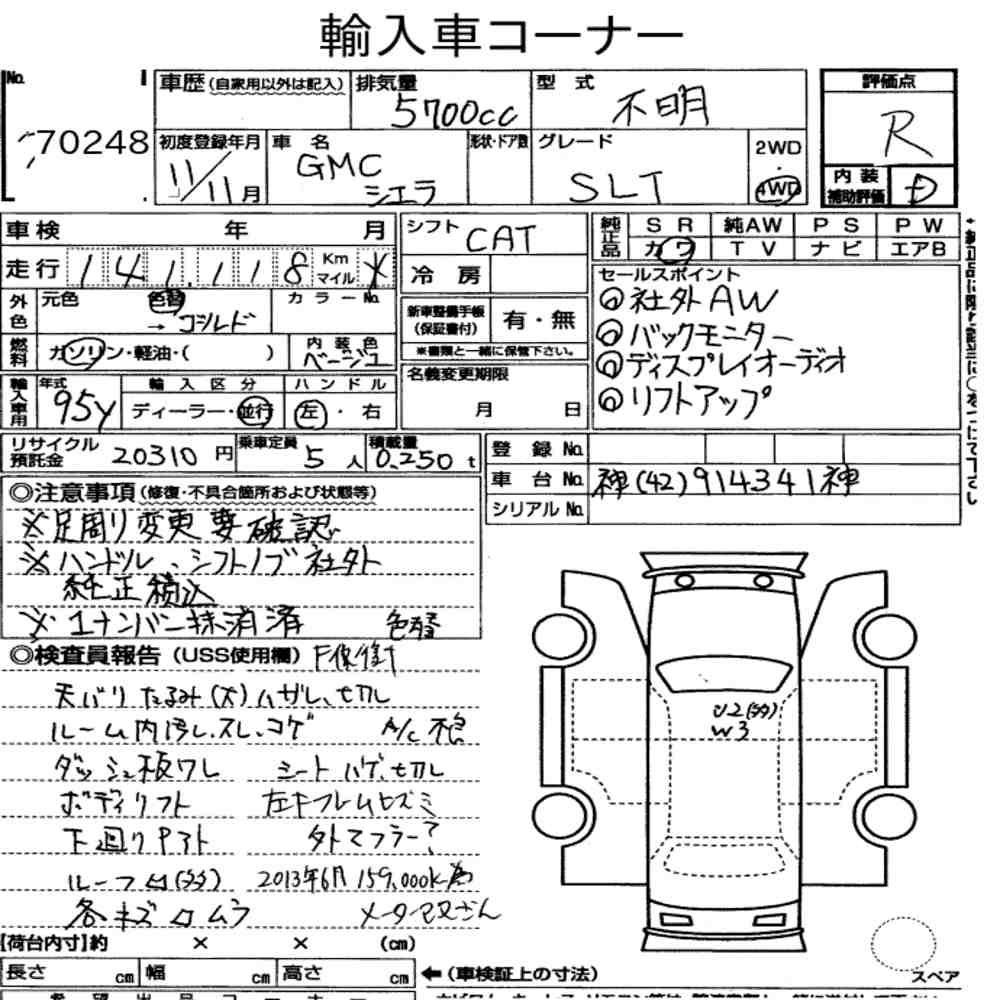 輸入車コーナー
No.
70248
車歴(自家用以外は記入)
排気量
5700cc
型式
不明
評価点
R
初度登録年月
11/11月
車名
GMC
シエラ
形状・ドア数
グレード
SLT
2WD
・
4WD
内装
補助評価
D
車検 年 月
走行 141,118 Km マイル
シフト
CAT
冷房
純正品
SR 純AW PS PW
カワ TV ナビ エアB
外色
元色
色替
→ゴールド
カラーNo.
燃料
ガソリン・軽油・( )
内装色
ベージュ
新車整備手帳
(保証書付)
有・無
※書類と一緒に保管下さい。
名義変更期限
月 日
セールスポイント
◎社外AW
◎バックモニター
◎ディスプレイオーディオ
◎リフトアップ
輸入車用
年式
95y
輸入区分
ディーラー・並行
ハンドル
左・右
リサイクル
預託金
20310円
乗車定員
5人
積載量
0.250t
登録No.
車台No.
神(42)914341神
シリアルNo.
◎注意事項(修復・不具合箇所および状態等)
※足周り変更要確認
※ハンドル、シフトノブ社外
純正積込
※1ナンバー抹消済
色替
◎検査員報告(USS使用欄)
F修復
天バリたるみ(大)ハガレ、切レ
ルーム内汚レ、スレ、コゲ
A/C不良
ダッシュ板ワレ
シートハゲ、切レ
ボディリフト
左フレームヒズミ
下廻りサビ
外マフラー?
ルーフ凸(多)
2013年6月159,000k
各キズ凹ムラ
メーター改ざん
U2(多)
W3
【荷台内寸】約 × × (cm)
長さ cm 幅 cm 高さ cm
←(車検証上の寸法)
スペア